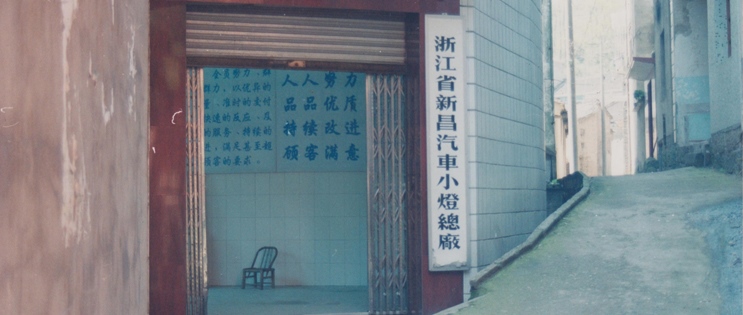 全员努力、
力，以优异的
量、准时的交付
快速的反应、
的服务、持续的
进，满足甚至超
顾客的要求。
人人努力
品品优质
持续改进
顾客满意
浙江省新昌汽車小燈總廠